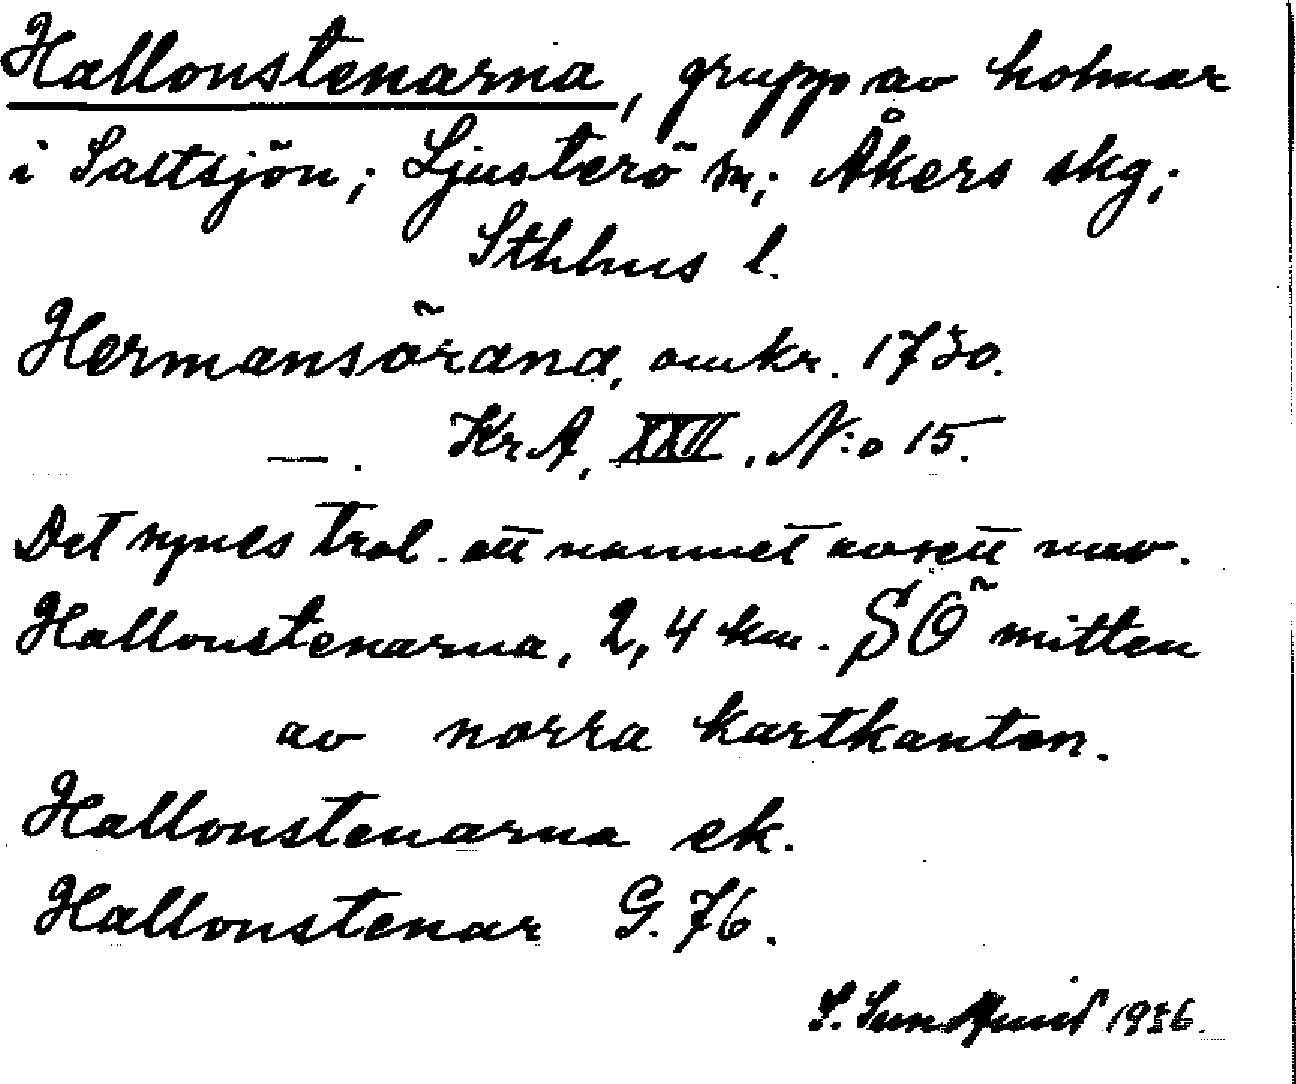 Hallonstenarna, grupp av holmar
i Saltsjön; Ljusterö sn; Åkers skg;
Sthlms l.
Hermansörana, omkr. 1730.
—. KrA, XXII, N:o 15.
Det synes trol. att namnet avsett nuv.
Hallonstenarna, 2,4 km. SÖ mitten
av norra kartkanten.
Hallonstenarna ek.
Hallonstenar G. 76.
S. 1936.